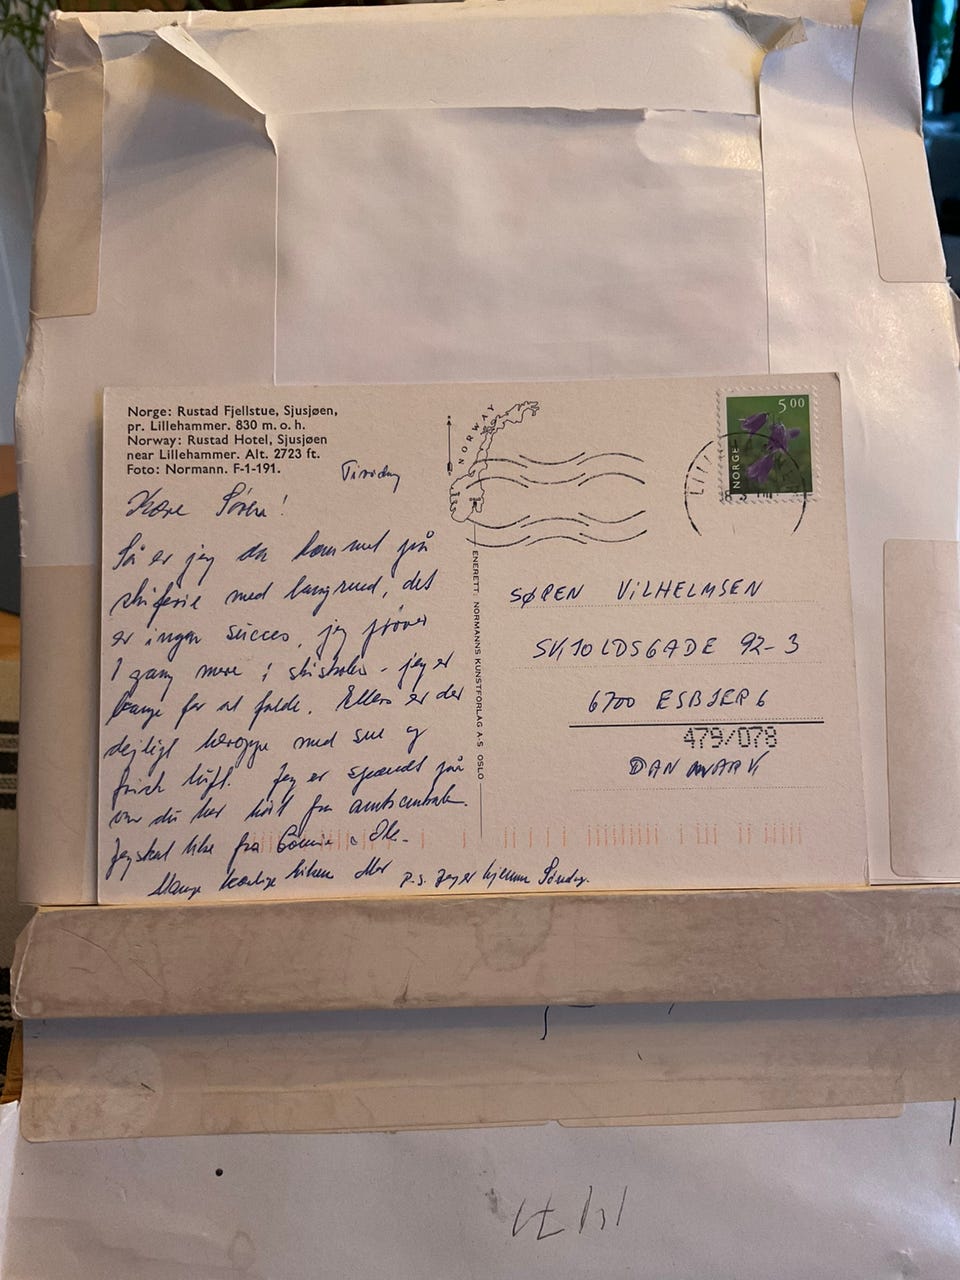 Norge: Rustad Fjellstue, Sjusjøen,
pr. Lillehammer. 830 m. o. h.
Norway: Rustad Hotel, Sjusjøen
near Lillehammer. Alt. 2723 ft.
Foto: Normann. F-1-191.
Tirsdag
Kære Søren!
Så er jeg da kommet på
skiferie med langrend, det
er ingen succes, jeg prøver
1 gang mere i skiskolen - jeg er
bange for at falde. Ellers er der
dejligt heroppe med sne og
frisk luft. Jeg er spændt på
om du har hørt fra
Jeg skal hilse fra Connie &
Mange kærlige hilsen Mor
p.s. Jeg er hjemme Søndag.
NORWAY
ENERETT: NORMANNS KUNSTFORLAG A·S OSLO
NORGE
5 00
SØREN VILHELMSEN
SKJOLDSGADE 92-3
6700 ESBJERG
479/078
DANMARK